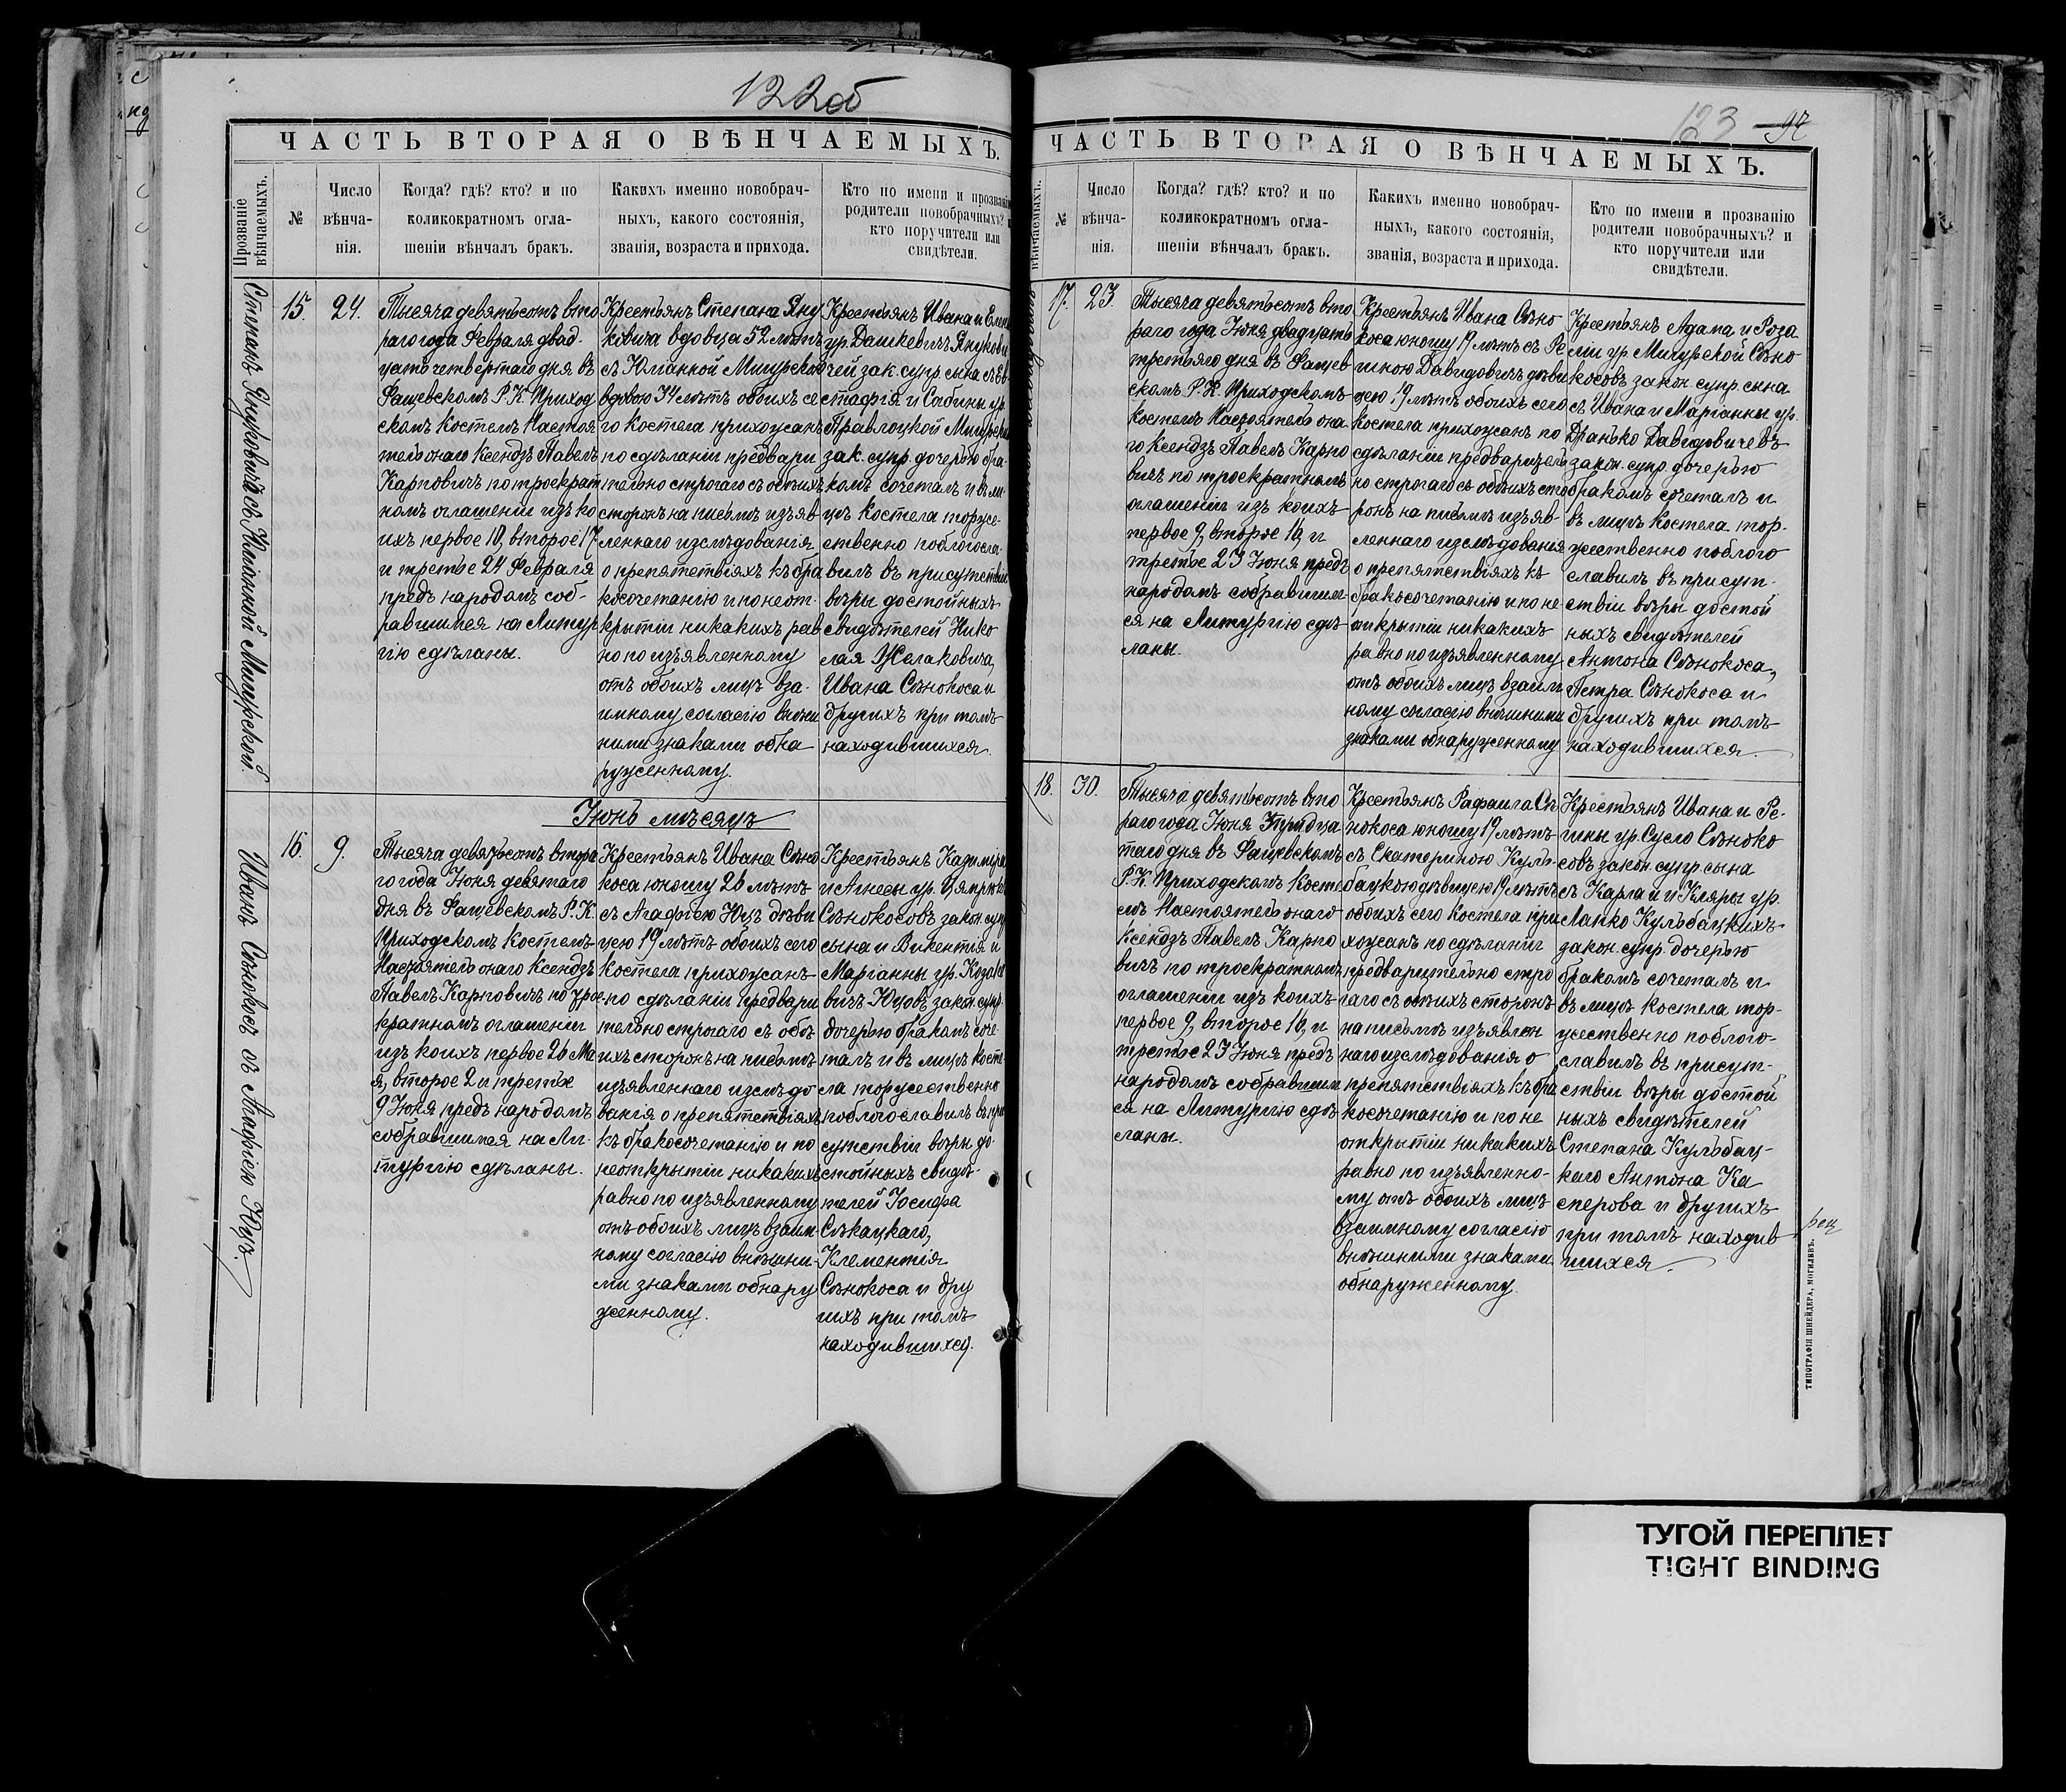 122об
ЧАСТЬ ВТОРАЯ О ВѢНЧАЕМЫХЪ.
Прозваніе
вѣнчаемыхъ.
№
Число
вѣнча-
нія.
Когда? гдѣ? кто? и по
коликократномъ огла-
шеніи вѣнчалъ бракъ.
Какихъ именно новобрач-
ныхъ, какого состоянія,
званія, возраста и прихода.
Кто по имени и прозванію
родители новобрачныхъ? и
кто поручители или
свидѣтели.
Степанъ Януковичъ съ Юліанной Мигурской.
15.
24.
Тысяча девятьсотъ вто
раго года Февраля двад-
цать четвертаго дня въ
Фащевскомъ Р. К. Приход
скомъ костелѣ Настоя
тель онаго Ксендзъ Павелъ
Карповичъ по троекрат
номъ оглашеніи изъ ко
ихъ первое 10, второе 17
и третье 24 Февраля
предъ народомъ соб-
равшимся на Литур
гію сдѣланы.
Крестьянъ Степана Яну
ковича вдовца 52 лѣтъ
съ Юліанной Мигурской
вдовою 34 лѣтъ обоихъ се
го костела прихожанъ
по сдѣланіи предвари
тельно строгаго съ обѣихъ
сторонъ на письмѣ изъяв
леннаго изслѣдованія
о препятствіяхъ къ бра
косочетанію и по неот-
крытіи никакихъ рав
но по изъявленному
отъ обоихъ лицъ вза-
имному согласію внѣш
ними знаками обна
руженному.
Крестьянъ Ивана и Елены
ур. Дашкевичъ Янукови
чей зак. супр. сына съ Ев-
стафія и Сабины ур.
Мигурской
зак. супр. дочерью бра-
комъ сочеталъ и въ ли-
цѣ костела торже-
ственно поблагосло-
вилъ въ присутствіи
вѣры достойныхъ
свидѣтелей Нико
лая Желаковича,
Ивана Сѣнокоса и
другихъ при томъ
находившихся.
Іюнь мѣсяцъ
Иванъ Сѣнокосъ съ Агафіею Юцъ.
16.
9.
Тысяча девятьсотъ втора
го года Іюня девятаго
дня въ Фащевскомъ Р. К.
Приходскомъ костелѣ
Настоятель онаго Ксендзъ
Павелъ Карповичъ по трое
кратномъ оглашеніи
изъ коихъ первое 26 Ма
я, второе 2 и третье
9 Іюня предъ народомъ
собравшимся на Ли-
тургію сдѣланы.
Крестьянъ Ивана Сѣно
коса юношу 26 лѣтъ
съ Агафіею Юцъ дѣви
цею 19 лѣтъ обоихъ сего
костела прихожанъ
по сдѣланіи предвари
тельно строгаго съ обѣ
ихъ сторонъ на письмѣ
изъявленнаго изслѣдо
ванія о препятствіяхъ
къ бракосочетанію и по
неоткрытіи никакихъ
равно по изъявленному
отъ обоихъ лицъ взаим
ному согласію внѣшни-
ми знаками обнару
женному.
Крестьянъ Казиміра
и Агнесы ур.
Сѣнокосовъ закон. супр.
сына и Викентія и
Маріанны ур.
вичъ Юцовъ закон. супр.
дочерью бракомъ соче-
талъ и въ лицѣ косте-
ла торжественно
поблагословилъ въ при
сутствіи вѣры до-
стойныхъ свидѣ-
телей Іосифа
Сѣкацкаго,
Клементія
Сѣнокоса и дру
гихъ при томъ
находившихся.
123 97
ЧАСТЬ ВТОРАЯ О ВѢНЧАЕМЫХЪ.
вѣнчаемыхъ.
№
Число
вѣнча-
нія.
Когда? гдѣ? кто? и по
коликократномъ огла-
шеніи вѣнчалъ бракъ.
Какихъ именно новобрач-
ныхъ, какого состоянія,
званія, возраста и прихода.
Кто по имени и прозванію
родители новобрачныхъ? и
кто поручители или
свидѣтели.
17.
23.
Тысяча девятьсотъ вто
раго года Іюня двадцать
третьяго дня въ Фащев
скомъ Р. К. Приходскомъ
костелѣ Настоятель она
го Ксендзъ Павелъ Карпо
вичъ по троекратномъ
оглашеніи изъ коихъ
первое 9, второе 16, и
третье 23 Іюня предъ
народомъ собравшим
ся на Литургію сдѣ
ланы.
Крестьянъ Ивана Сѣно
коса юношу 19 лѣтъ съ Ре
гиною Давидовичъ дѣви
цею 19 лѣтъ обоихъ сего
костела прихожанъ по
сдѣланіи предваритель
но строгаго съ обѣихъ сто
ронъ на письмѣ изъяв-
леннаго изслѣдованія
о препятствіяхъ къ
бракосочетанію и по не
открытіи никакихъ
равно по изъявленному
отъ обоихъ лицъ взаим
ному согласію внѣшними
знаками обнаруженному
Крестьянъ Адама и Роза
ліи ур Мигурской Сѣно
косовъ закон. супр. сына
съ Ивана и Маріанны ур.
Дранько Давидовичевъ
закон. супр. дочерью
бракомъ сочеталъ и
въ лицѣ костела тор-
жественно поблаго
славилъ въ присут-
ствіи вѣры достой
ныхъ свидѣтелей
Антона Сѣнокоса,
Петра Сѣнокоса и
другихъ при томъ
находившихся
18.
30.
Тысяча девятьсотъ вто
раго года Іюня Тридца
таго дня въ Фащевскомъ
Р. К. Приходскомъ косте
лѣ Настоятель онаго
Ксендзъ Павелъ Карпо
вичъ по троекратномъ
оглашеніи изъ коихъ
первое 9, второе 16, и
третье 23 Іюня предъ
народомъ собравшим
ся на Литургію сдѣ
ланы.
Крестьянъ Рафаила Сѣ
нокоса юношу 19 лѣтъ
съ Екатериною Куль-
бацкою дѣвицею 19 лѣтъ
обоихъ сего костела при
хожанъ по сдѣланіи
предварительно стро
гаго съ обѣихъ сторонъ
на письмѣ изъявлен
наго изслѣдованія о
препятствіяхъ къ бра
косочетанію и по не
открытіи никакихъ
равно по изъявленно-
му отъ обоихъ лицъ
взаимному согласію
внѣшними знаками
обнаруженному.
Крестьянъ Ивана и Ре-
гины ур. Сусло Сѣноко
совъ закон. супр. сына
съ Карла и и Кляры ур.
Лапко Кульбацкихъ
закон. супр. дочерью
бракомъ сочеталъ и
въ лицѣ костела тор-
жественно поблаго-
славилъ въ присут-
ствіи вѣры достой
ныхъ свидѣтелей
Степана Кульбац-
каго Антона Ка
сперова и другихъ
при томъ находив
шихся.
ТИПОГРАФІЯ ШНЕЙДЕРА, МОГИЛЕВЪ.
ТУГОЙ ПЕРЕПЛЕТ
TIGHT BINDING